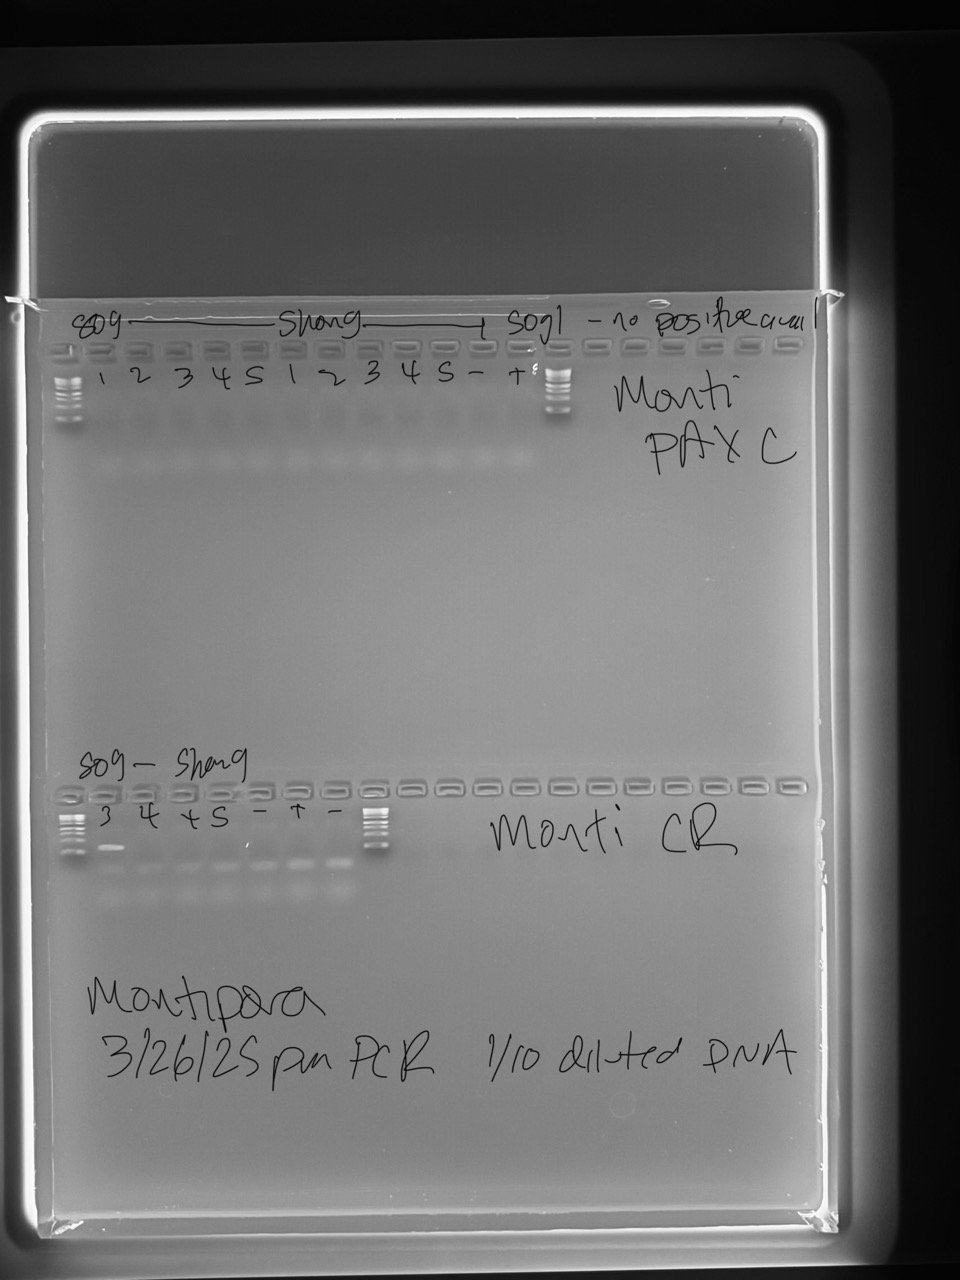 sog — Shang — sog1 - no positive avail
1 2 3 4 5 1 2 3 4 5 - +
Monti
PAX C
sog - Shang
3 4 + 5 - + -
Monti CR
Montipora
3/26/25 pm PCR 1/10 diluted DNA